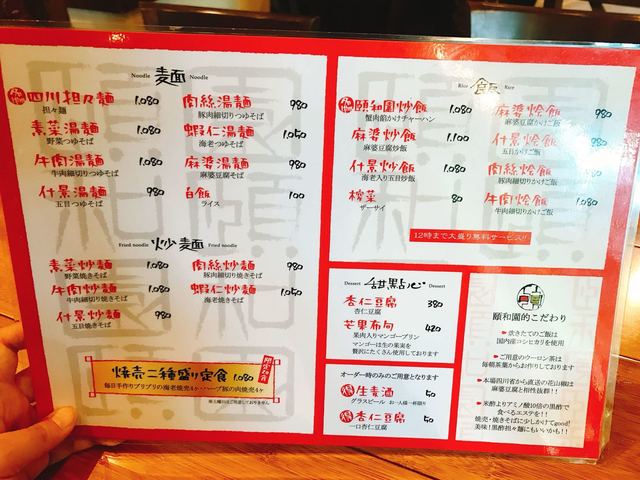 Noodle 麺 Noodle
四川担々麺 1.080
担々麺
素菜湯麺 980
野菜つゆそば
牛肉湯麺 1.080
牛肉細切りつゆそば
什景湯麺 980
五目つゆそば
肉絲湯麺 980
豚肉細切りつゆそば
蝦仁湯麺 1.050
海老つゆそば
麻婆湯麺 980
麻婆豆腐そば
白飯 100
ライス
Fried noodle 炒麺 Fried noodle
素菜炒麺 1.080
野菜焼きそば
牛肉炒麺 1.080
牛肉細切り焼きそば
什景炒麺 980
五目焼きそば
肉絲炒麺 980
豚肉細切り焼きそば
蝦仁炒麺 1.050
海老焼きそば
焼売二種盛り定食 1.080
毎日手作りプリプリの海老焼売4ヶ・ハーブ豚の肉焼売4ヶ
Rice 飯 Rice
頤和園炒飯 1.080
蟹肉餡かけチャーハン
麻婆炒飯 1.100
麻婆豆腐炒飯
什景炒飯 1.080
海老入り五目炒飯
搾菜 80
ザーサイ
麻婆烩飯 980
麻婆豆腐かけご飯
什景烩飯
五目かけご飯
肉絲烩飯 980
豚肉細切りかけご飯
牛肉烩飯 1.080
牛肉細切りかけご飯
12時まで大盛り無料サービス!!
Dessert 甜點心 Dessert
杏仁豆腐 380
杏仁豆腐
芒果布甸 420
果肉入りマンゴープリン
マンゴーは生の果実を
贅沢にたくさん使用しております
オーダー時のみのご用意となります
得 生麦酒 50
グラスビール お一人様一杯限り
得 杏仁豆腐 50
一口杏仁豆腐
頤和園的こだわり
・炊きたてのご飯は
国内産コシヒカリを使用
・ご用意のウーロン茶は
毎朝茶葉からお作りしております
・本場四川省から直送の花山椒は
麻婆豆腐と相性抜群!!
・米酢よりアミノ酸10倍の黒酢で
食べるエステを!!
焼売・焼きそばに少しかけてgood!
美味!黒酢担々麺にもいいかも!!